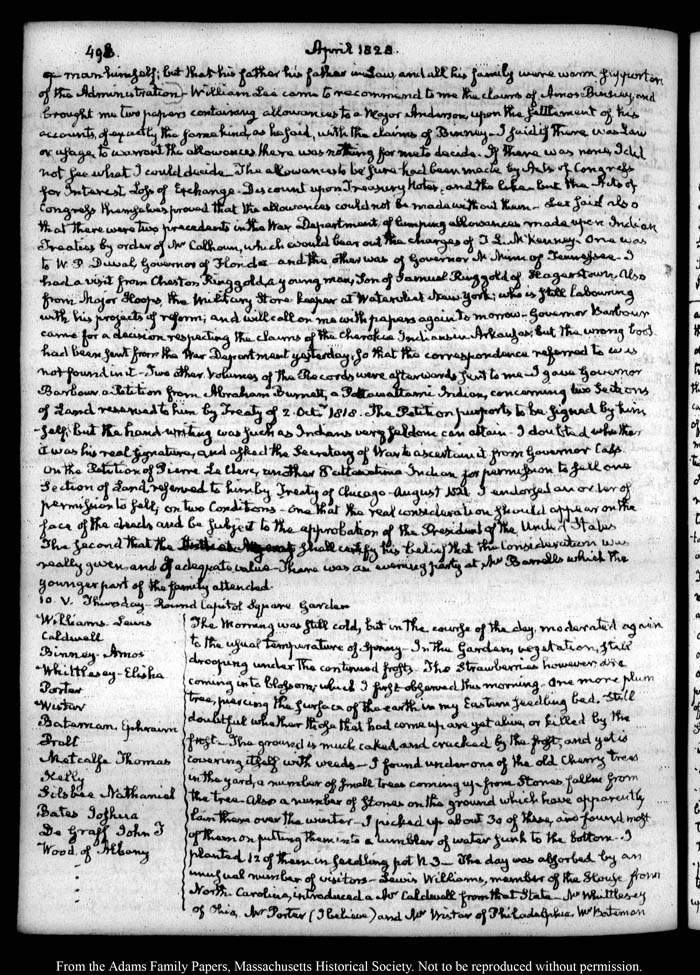 498
April 1828.
of man himself; but that his father his father in Law and all his family were warm supporters
of the Administration. William Lee came to recommend to me the claims of Amos Binney, and
brought me two papers containing allowances to a Major Anderson, upon the settlement of his
accounts, of exactly the same kind, as he said, with the claims of Binney. I said if there was Law
or usage, to warrant the allowances there was nothing for me to decide. If there was none, I did
not see what I could decide. The allowances to be sure had been made by Acts of Congress
for Interest, Loss of Exchange. Discount upon Treasury Notes, and the like. but the Acts of
Congress themselves proved that the allowances could not be made without them. Lee said also
that there were two precedents in the War Department, of lumping allowances made upon Indian
Treaties by order of Mr Calhoun, which would bear out the charges of T. L. McKenney. One was
to W. P. Duval, Governor of Florida and the other was of Governor McMinn of Tennessee. I
had a visit from Charlton Ringgold, a young man, Son of Samuel Ringgold of Hagerstown. Also
from Major Hoops, the Military Store keeper at Watervliet New York; who is still labouring
with his projects of reform; and will call on me with papers again tomorrow. Governor Barbour
came for a decision respecting the claims of the Cherokee Indians in Arkansas; but the wrong book
had been sent from the War Department yesterday, so that the correspondence referred to was
not found in it. Two other Volumes of the Records were afterwards sent to me. I gave Governor
Barbour a Petition from Abraham Burnett, a Pottawattamie Indian, concerning two Sections
of Land reserved to him by Treaty of 2 Octr 1818. The Petition purports to be signed by him
self; but the hand-writing was such as Indians very seldom can attain. I doubted whether
it was his real signature, and asked the Secretary of War to ascertain it from Governor Cass.
On the Petition of Pierre Le Clerc, another Indian for permission to sell one
Section of Land, reserved to him by Treaty of Chicago August 1821 I endorsed an order of
permission to sell; on two Conditions. One that the real consideration should appear on the
face of the deeds and be subject to the approbation of the President of the United States
The second that the shall certify his belief that the consideration was
really given and of adequate value. There was an evening party at Mr Barrell's which the
younger part of the family attended.
10. V. Thursday. Round Capitol Square Garden
Williams Lewis
Caldwell
Binney. Amos
Whittlesey. Elisha
Porter
Wistar
Bateman. Ephraim
Metcalfe Thomas
Kelly
Silsbee Nathaniel
Bates Joshua
De Graff John I
Wood. of Albany
The Morning was still cold, but in the course of the day, moderated again
to the usual temperature of Spring. In the Garden, vegetation, still
drooping under the continued frosts. The Strawberries however are
coming into blossom; which I first observed this morning. One more plum
tree, piercing the surface of the earth in my Eastern seedling bed. Still
doubtful whether those that had come up, are yet alive, or killed by the
frost. The ground is much caked and cracked by the frost, and yet is
covering itself with weeds. I found under one of the old Cherry trees
in the yard, a number of small trees coming up from Stones fallen from
the tree. Also a number of Stones on the ground which have apparently
lain there over the winter. I picked up about 30 of these, and found most
of them on putting them into a tumbler of water sunk to the bottom. I
planted 12 of them in seedling pot N. 3. The day was absorbed by an
unusual number of visitors. Lewis Williams, member of the House from
North-Carolina, introduced a Mr Caldwell from that State. Mr Whittlesey
of Ohio, Mr Porter (I believe) and Mr Wistar of Philadelphia. Mr Bateman
From the Adams Family Papers, Massachusetts Historical Society. Not to be reproduced without permission.